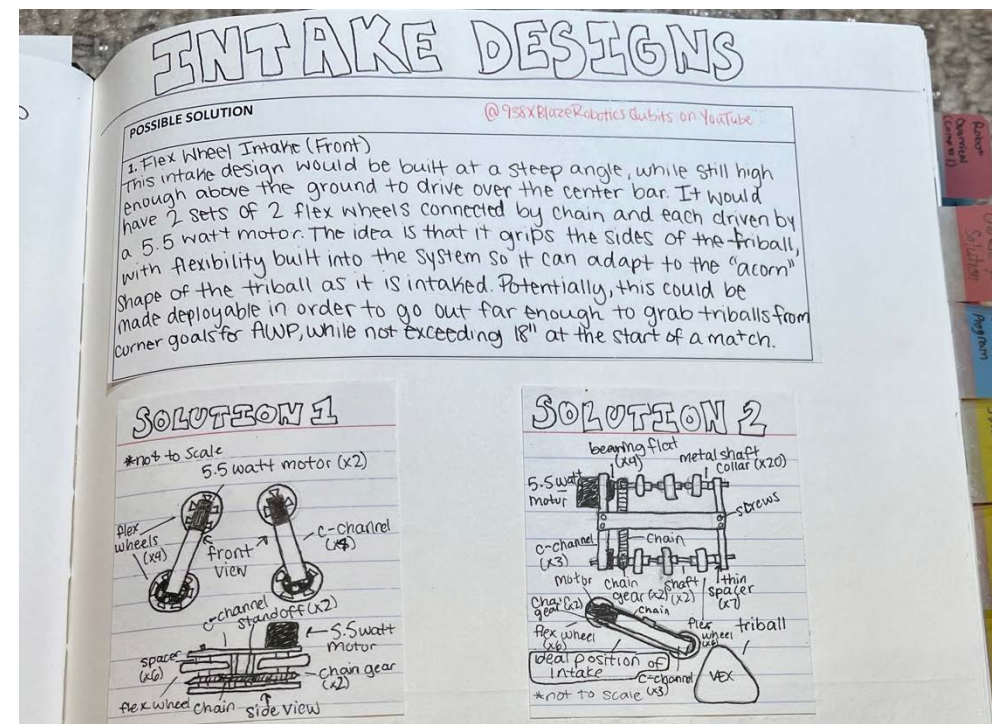 INTAKE DESIGNS
POSSIBLE SOLUTION
@938XBlazeRoboticsQubits on YouTube
1. Flex Wheel Intake (Front)
This intake design would be built at a steep angle, while still high
enough above the ground to drive over the center bar. It would
have 2 sets of 2 flex wheels connected by chain and each driven by
a 5.5 watt motor. The idea is that it grips the sides of the triball,
with flexibility built into the system so it can adapt to the "acorn"
shape of the triball as it is intaked. Potentially, this could be
made deployable in order to go out far enough to grab triballs from
corner goals for AWP, while not exceeding 18" at the start of a match.
SOLUTION 1
*not to scale
5.5 watt motor (x2)
flex
wheels
(x4)
front
view
c-channel
c-channel
standoff (x2)
5.5 watt
motor
spacer
(x6)
chain gear
(x2)
flex wheel
chain
side view
SOLUTION 2
bearing flat
(x4)
metal shaft
collar (x20)
5.5 watt
motor
screws
c-channel
(x3)
chain
motor
chain
gear (x2)
shaft
(x2)
thin
spacer
(x7)
gear (x2)
chain
flex wheel
(x6)
flex
wheel
(x6)
triball
ideal position of
intake
c-channel
(x3)
VEX
*not to scale
Program